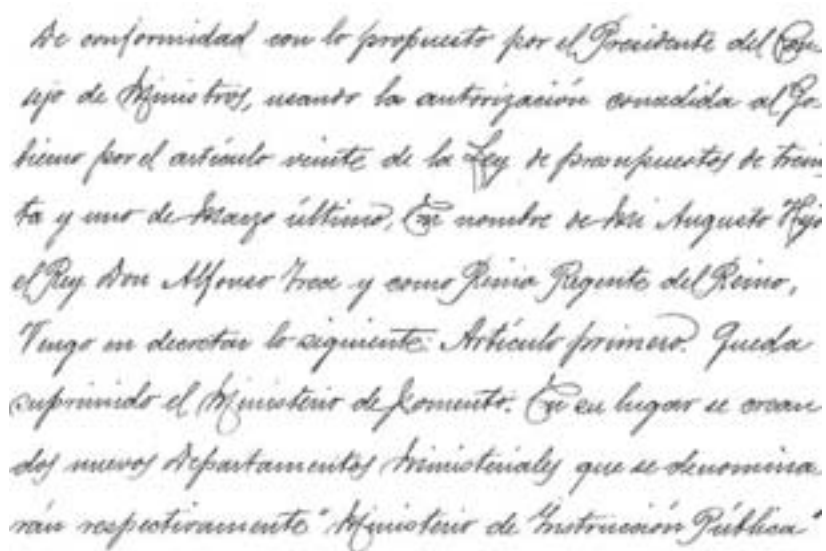 De conformidad con lo propuesto por el Presidente del Con-
sejo de Ministros, usando la autorización concedida al Go-
bierno por el artículo veinte de la Ley de presupuestos de trein
ta y uno de Marzo último, En nombre de Mi Augusto Hijo
el Rey Don Alfonso Trece y como Reina Regente del Reino,
Vengo en decretar lo siguiente: Artículo primero. Queda
suprimido el Ministerio de Fomento. En su lugar se crean
dos nuevos Departamentos Ministeriales que se denomina
rán respectivamente "Ministerio de Instrucción Pública"